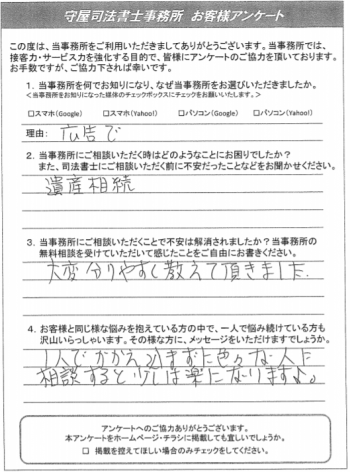 守屋司法書士事務所　お客様アンケート
この度は、当事務所をご利用いただきましてありがとうございます。当事務所では、
接客力・サービス力を強化する目的で、皆様にアンケートのご協力を頂いております。
お手数ですが、ご協力下されば幸いです。
1. 当事務所を何でお知りになり、なぜ当事務所をお選びいただきましたか。
＜当事務所をお知りになった媒体のチェックボックスにチェックをお願いいたします。＞
□スマホ(Google)　□スマホ(Yahoo!)　□パソコン(Google)　□パソコン(Yahoo!)
理由：広告で
2. 当事務所にご相談いただく時はどのようなことにお困りでしたか？
また、司法書士にご相談いただく前に不安だったことなどをお聞かせください。
遺産相続
3. 当事務所にご相談いただくことで不安は解消されましたか？当事務所の
無料相談を受けていただいて感じたことをご自由にお書きください。
大変分りやすく教えて頂きました.
4. お客様と同じ様な悩みを抱えている方の中で、一人で悩み続けている方も
沢山いらっしゃいます。その様な方に、メッセージをいただけますでしょうか。
1人でかかえ込まずに色々な人に
相談すると少しは楽になりますよ。
アンケートへのご協力ありがとうございます。
本アンケートをホームページ・チラシに掲載しても宜しいでしょうか。
□ 掲載を控えてほしい場合のみチェックをしてください。